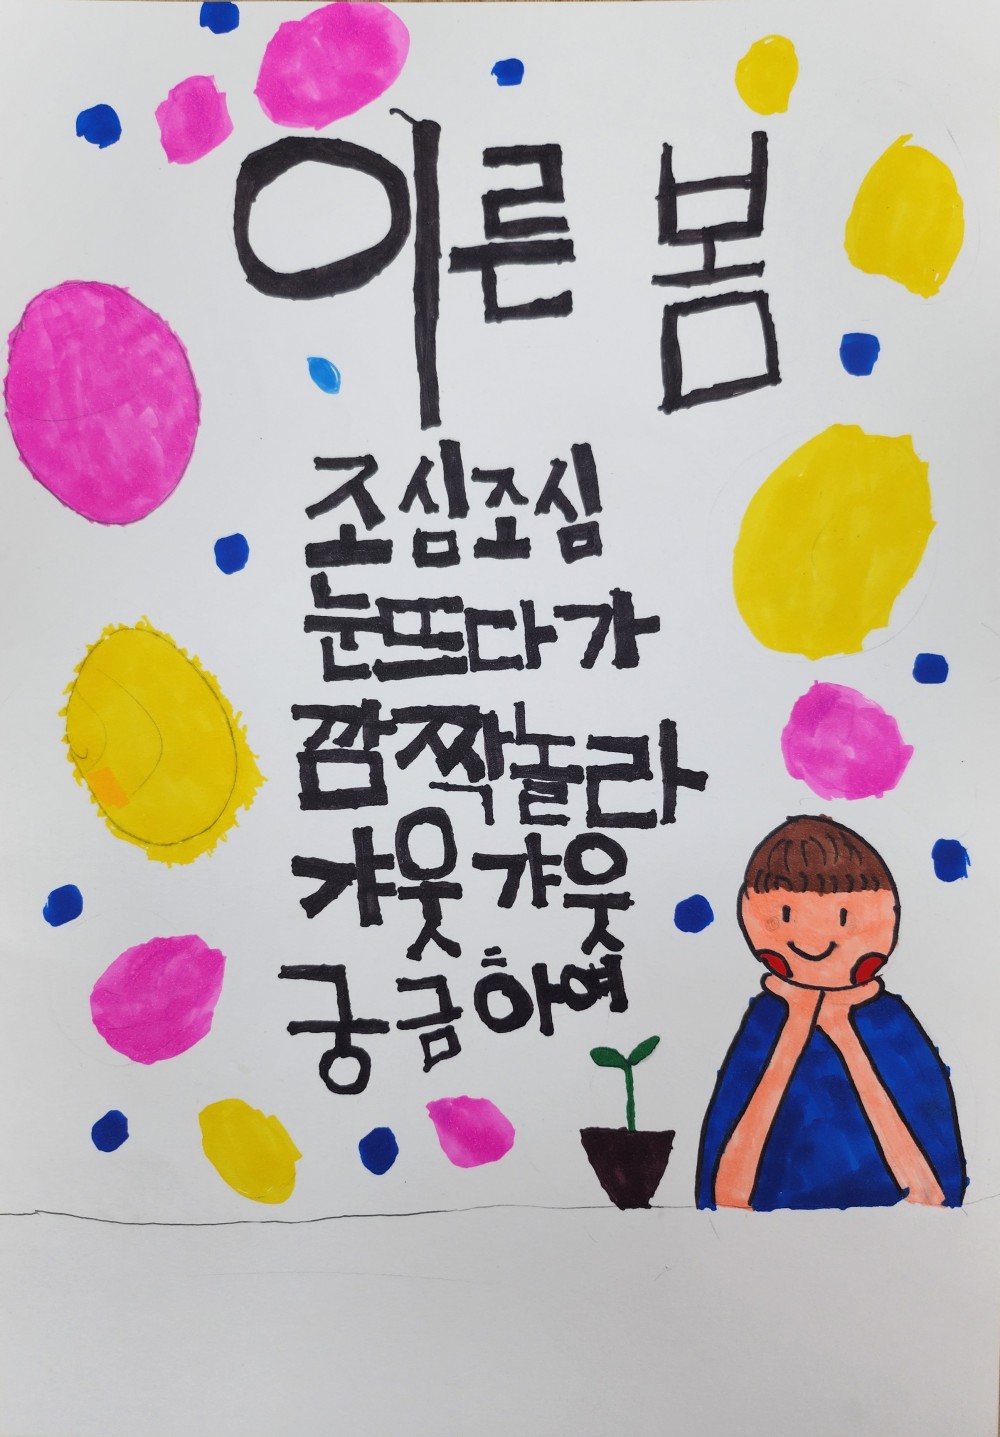 이른 봄
조심조심
눈뜨다가
깜짝놀라
갸웃갸웃
궁금하여